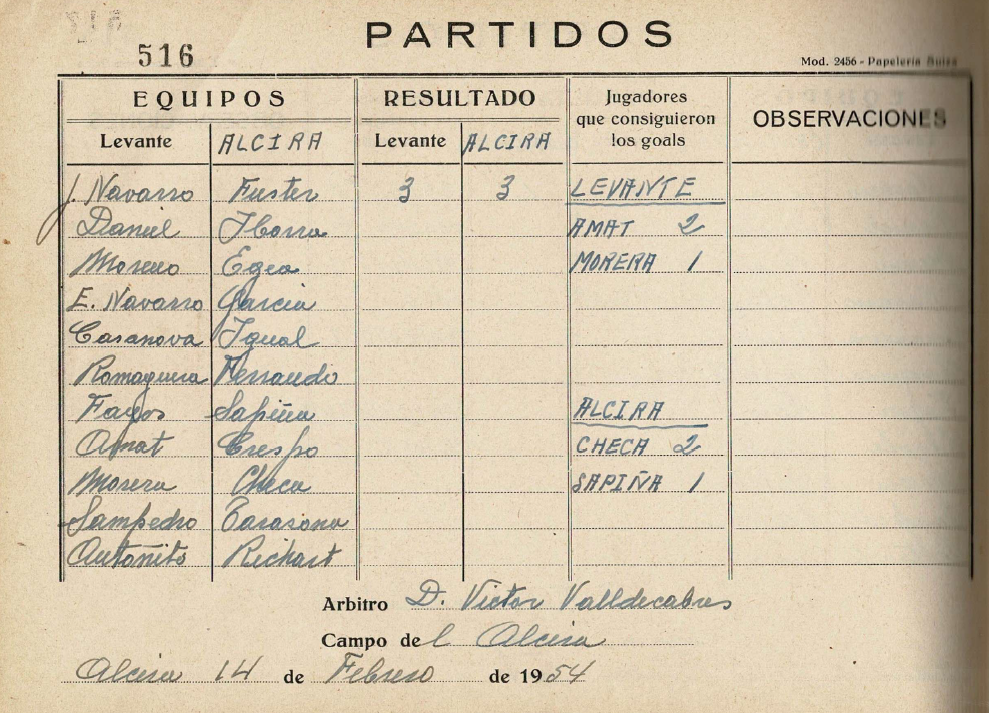 516
PARTIDOS
Mod. 2456 - Papelería
EQUIPOS RESULTADO Jugadores que consiguieron los goals OBSERVACIONES
Levante ALCIRA Levante ALCIRA
J. Navarro Fuster 3 3 LEVANTE
Daniel Iborra AMAT 2
Moreno Egea MORERA 1
E. Navarro Garcia
Casanova Igual
Ramaguera Ferrando
Fayos Sapiña ALCIRA
Amat Crespo CHECA 2
Morera Checa SAPIÑA 1
Sampedro Tarasona
Antoñito Richart
Arbitro D. Victor Valldecabres
Campo del Alcira
Alcira 14 de Febrero de 1954